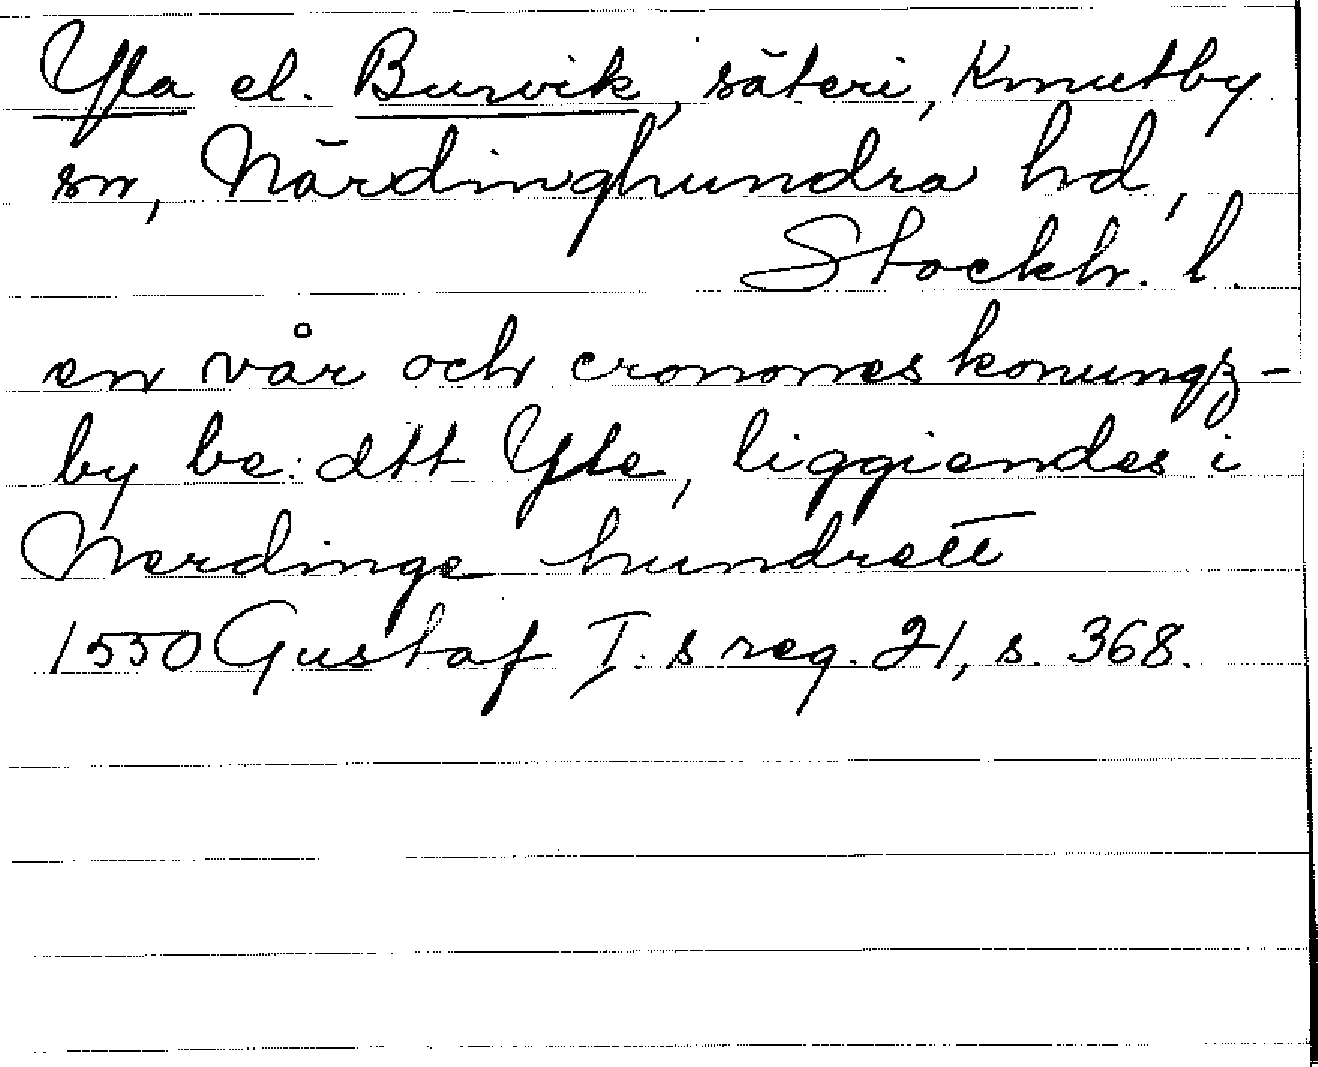 Yla el. Burvik, säteri, Knutby
sn, Närdinghundra hd,
Stockh. l.
en vår och cronones konungz-
by be: dtt Yle, liggiendes i
Nerdinge hundrett
1550 Gustaf I. s reg. 21, s. 368.